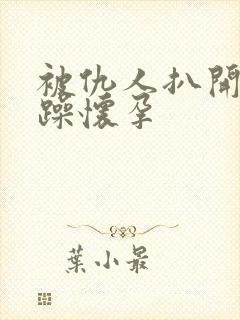 被仇人扒開
躁懷孕
葉小最